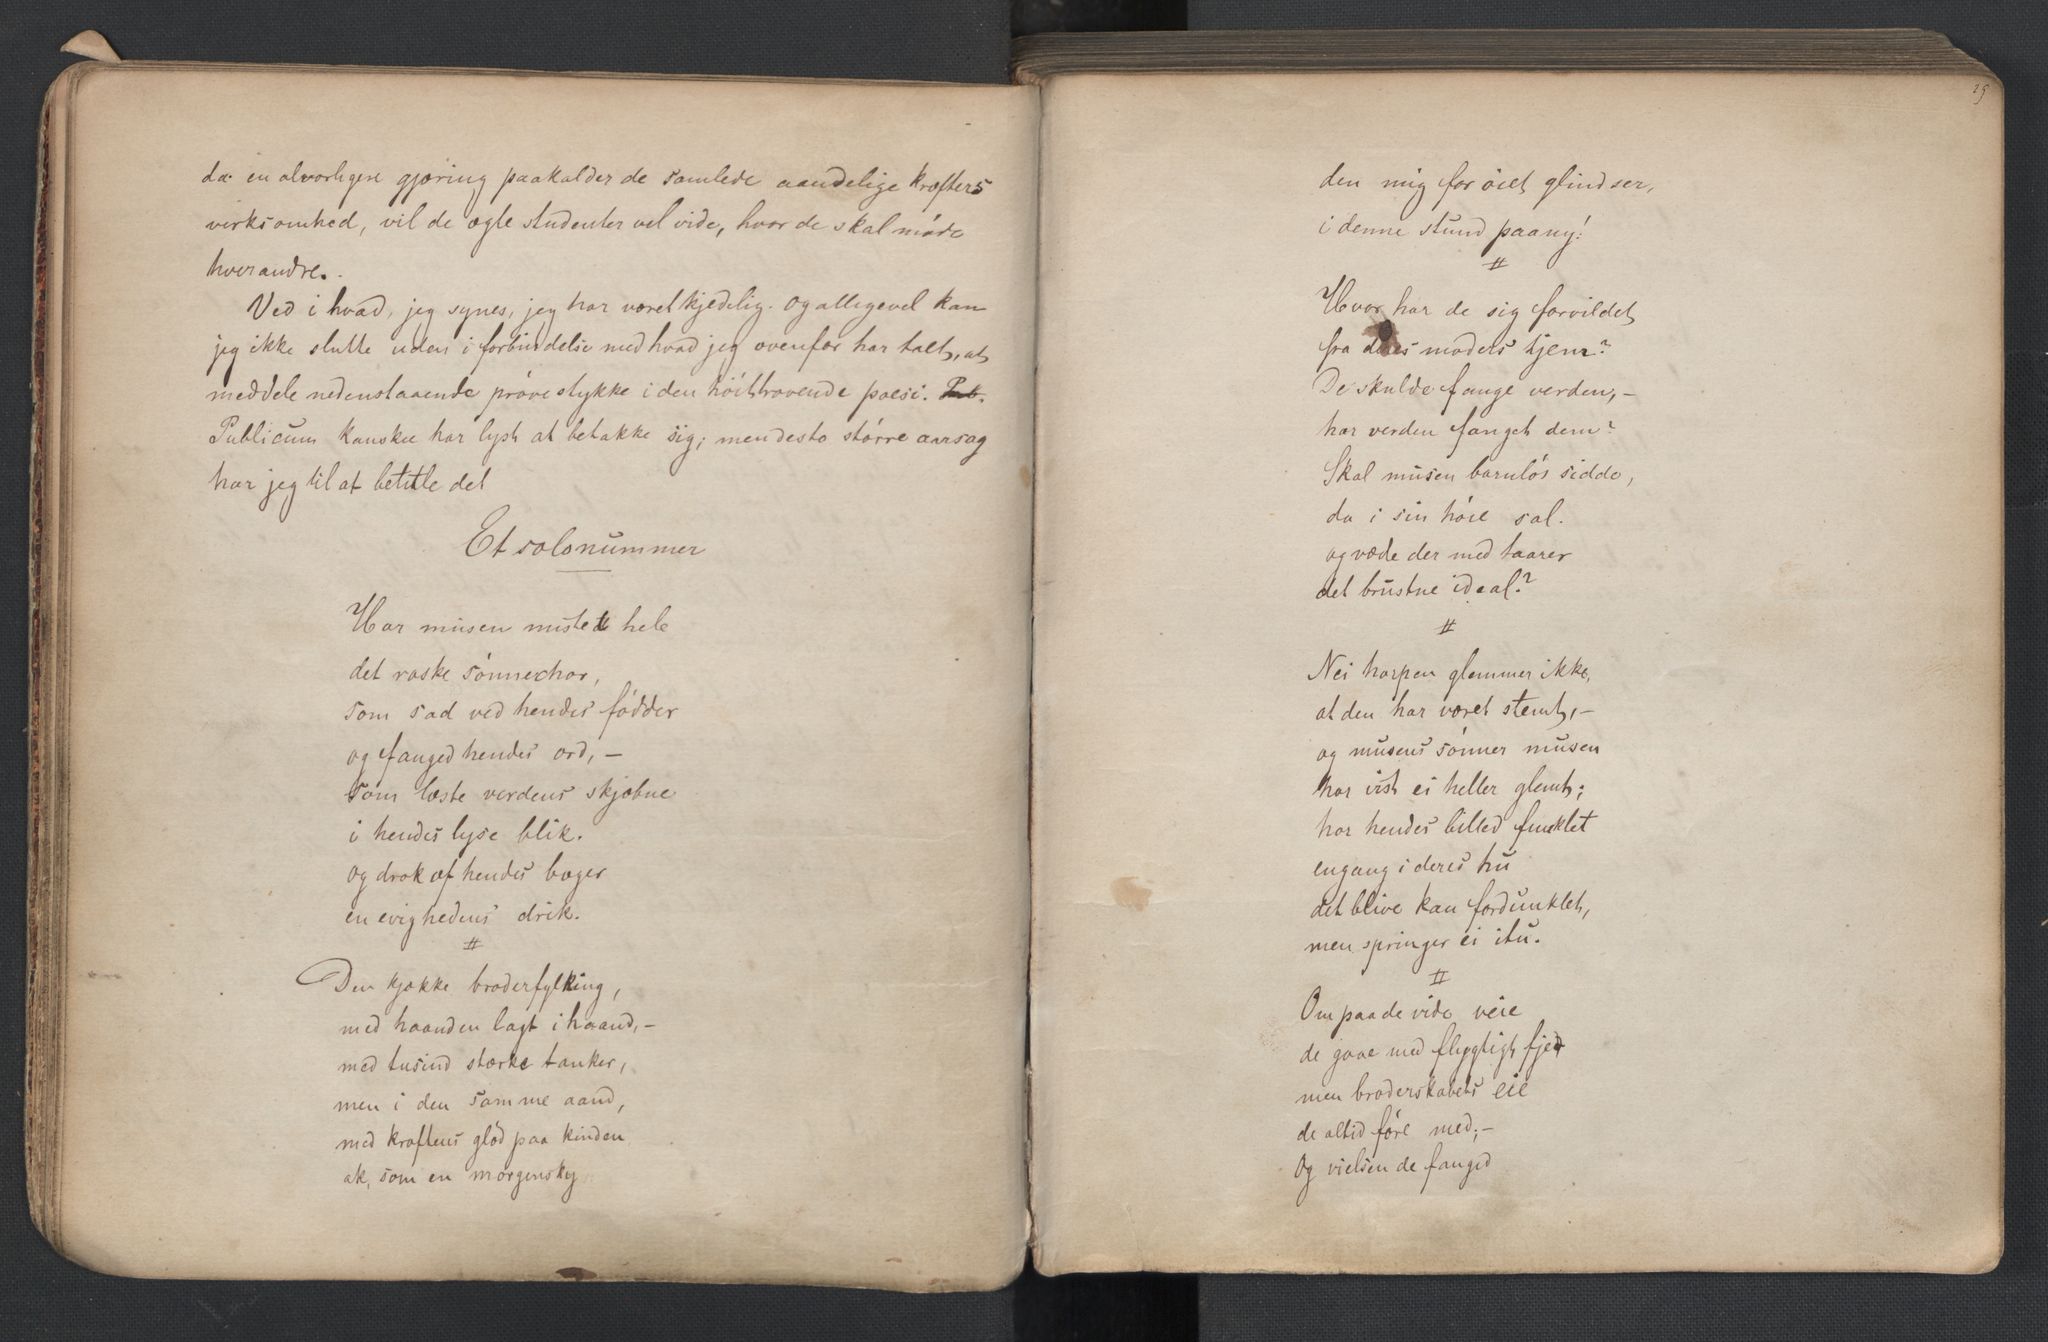 da en alvorligere gjæring paakalder de samlede aandelige kræfters
virksomhed, vil de ægte studenter vel vide, hvor de skal møde
hverandre.
Ved i hvad, jeg synes, jeg har været kjedelig. og alligevel kan
jeg ikke slutte uden i forbindelse med hvad jeg ovenfor har talt, at
meddele nedenstaaende prøvestykke i den høittravende poesi. Pub.
Publicum kanskee har lyst at betakke sig; men desto større aarsag
har jeg til at betitle det
Et solonummer
Har musen mistet hele
det raske sønnechor,
som sad ved hendes fødder
og fanged hendes ord, –
som læste verdens skjæbne
i hendes lyse blik.
og drak af hendes bæger
en evighedens drik.
#
Den kjække broderfylking,
med haanden lagt i haand, –
med tusind stærke tanker,
men i den samme aand,
med kraftens glød paa kinden
ak, som en morgensky
29
den mig for øiet glindser,
i denne stund paany!
#
Hvor har de sig forvildet
fra deres moders hjem?
De skulde fange verden, –
har verden fanget dem?
Skal musen barnløs sidde,
da i sin høie sal.
og væde der med taarer
det brustne ideal?
#
Nei harpen glemmer ikke,
at den har været stemt, –
og musens sønner musen
har vist ei heller glemt;
har hendes billed funklet
engang i deres hu
det blive kan fordunklet,
men springer ei itu.
#
Om paa de vide veie
de gaae med flygtigt fjed
men broderskabets eie
de altid føre med; –
Og vielsen de fanged